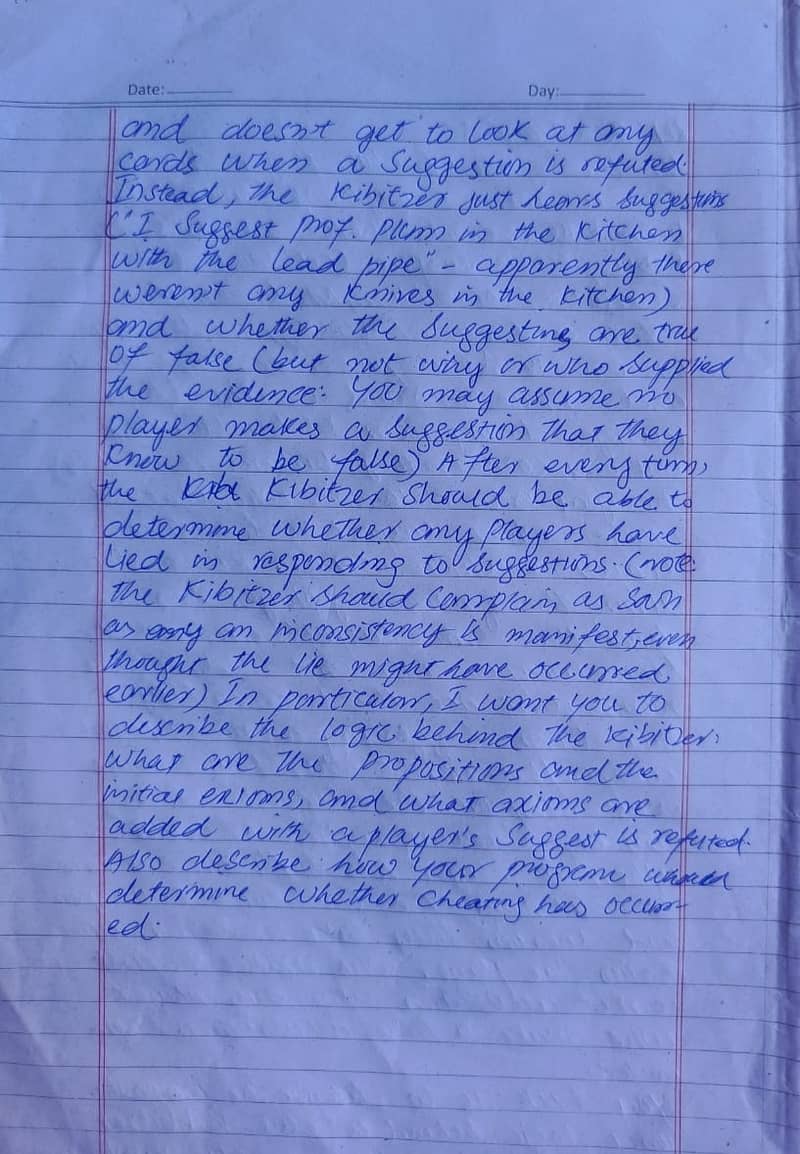 Date:
Day:
and doesn't get to look at any
cards when a suggestion is refuted.
Instead, the Kibitzer just hears suggestions
("I suggest Prof. Plum in the kitchen
with the lead pipe" - apparently there
weren't any knives in the kitchen)
and whether the suggestins are true
of false (but not why or who supplied
the evidence: you may assume no
player makes a suggestion that they
know to be false) After every turn,
the Kibitzer should be able to
determine whether any players have
lied in responding to suggestions. (note:
the Kibitzer should complain as soon
as an inconsistency is manifest, even
thought the lie might have occurred
earlier) In particular, I want you to
describe the logic behind the kibitzer:
what are the propositions and the
initial exioms, and what axioms are
added with a player's suggest is refuted.
Also describe how your program
determine whether cheating has occurr-
ed.